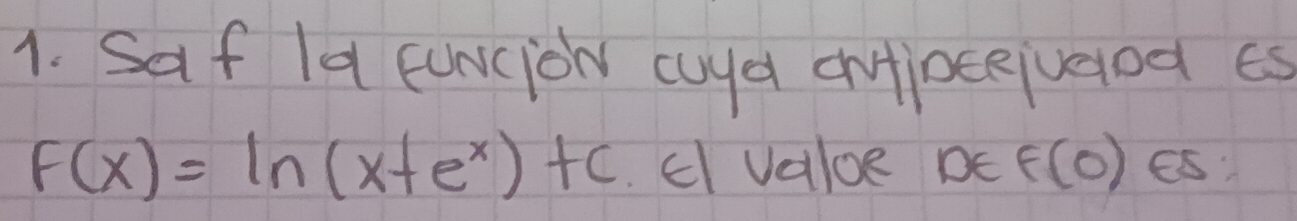 1. Sa f la función cuya antiderivada es
F(x) = ln(x+e^x) + C. El valor de f(0) es: